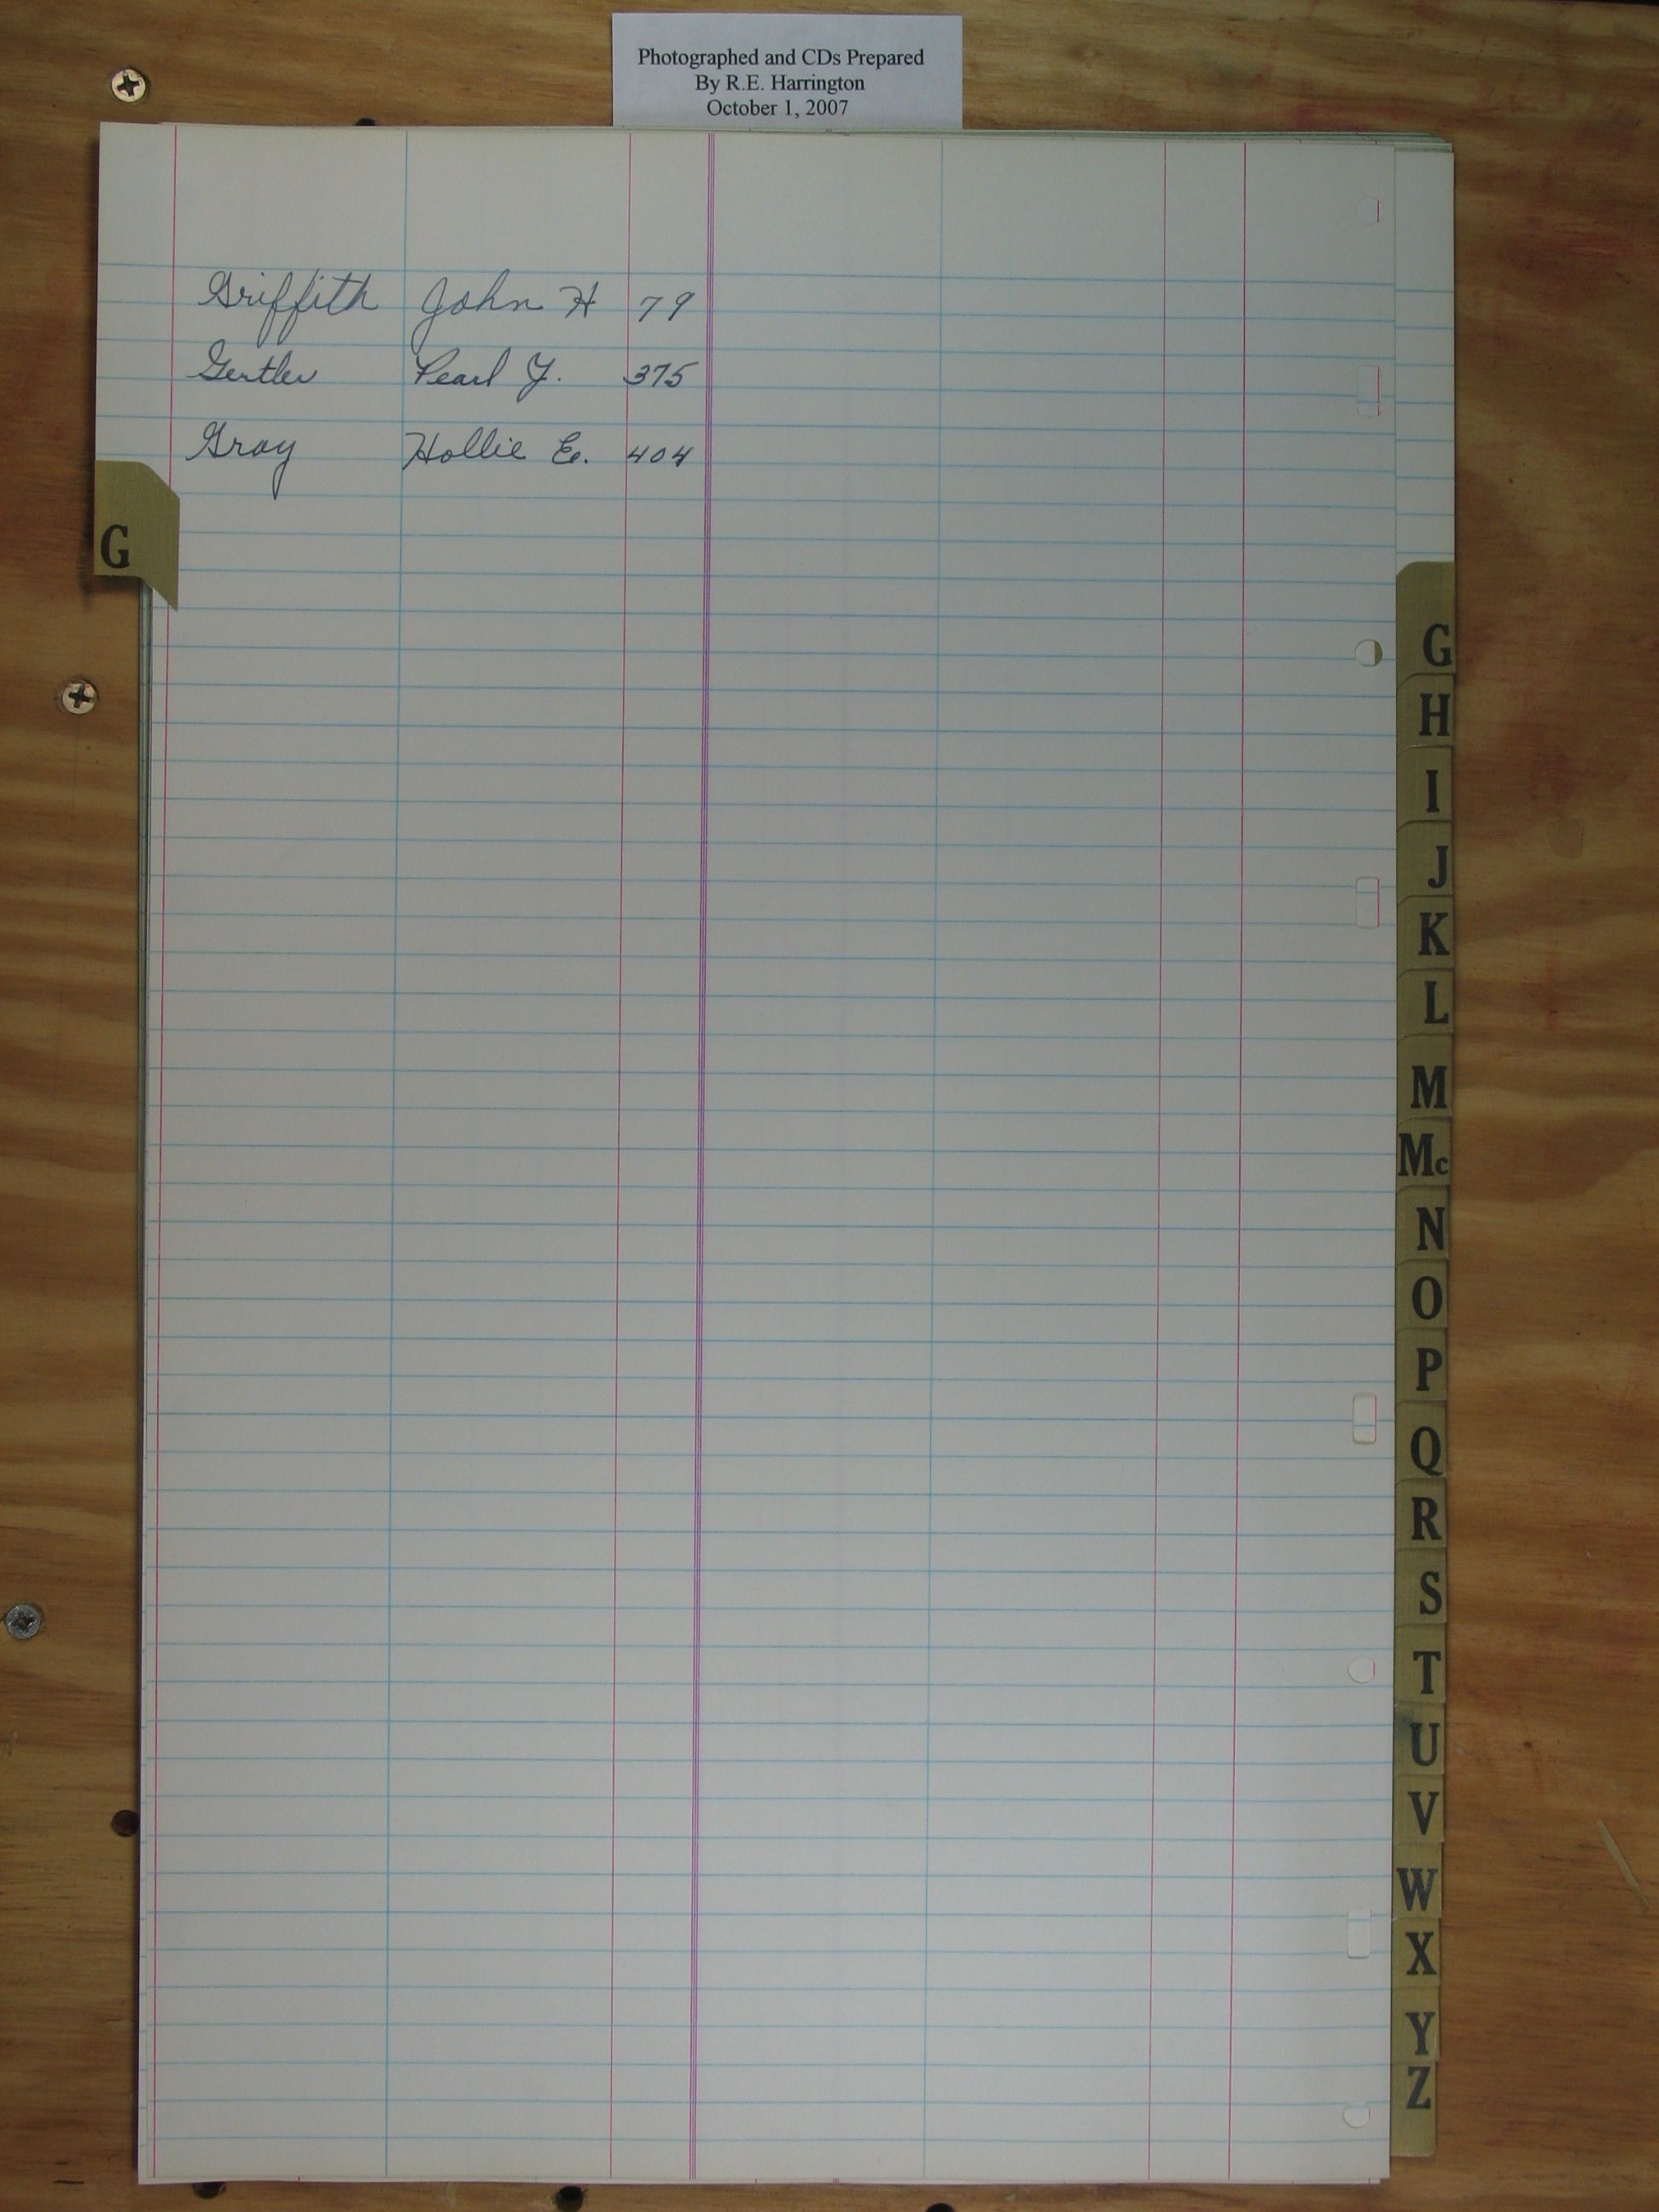 Photographed and CDs Prepared
By R.E. Harrington
October 1, 2007
Griffith John H 79
Gertler Pearl Y. 375
Gray Hollie E. 404
G
G
H
I
J
K
L
M
Mc
N
O
P
Q
R
S
T
U
V
W
X
Y
Z